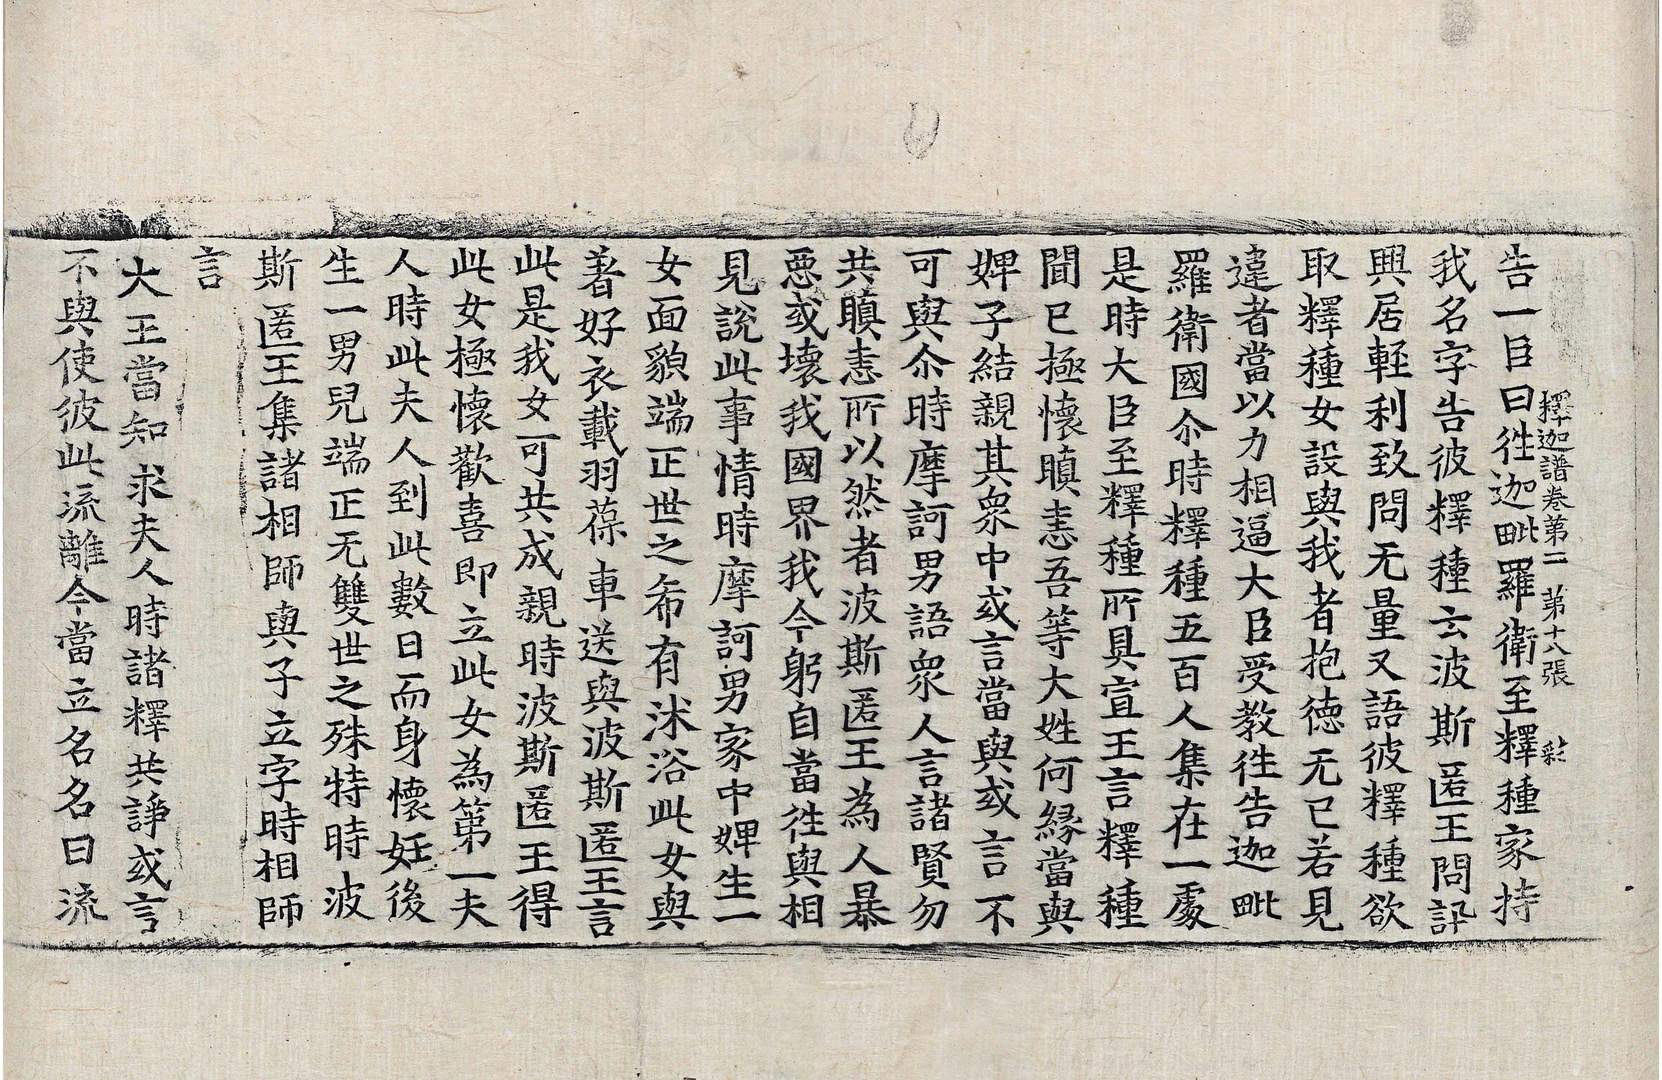 釋迦譜卷第二 第十八張 彩
告一臣曰徃迦毗羅衛至釋種家持
我名字告彼釋種云波斯匿王問訊
興居輕利致問无量又語彼釋種欲
取釋種女設與我者抱德无已若見
違者當以力相逼大臣受教徃告迦毗
羅衛國尒時釋種五百人集在一處
是時大臣至釋種所具宣王言釋種
聞已極懷瞋恚吾等大姓何緣當與
婢子結親其衆中或言當與或言不
可與尒時摩訶男語衆人言諸賢勿
共瞋恚所以然者波斯匿王為人暴
惡或壞我國界我今躬自當徃與相
見說此事情時摩訶男家中婢生一
女面貌端正世之希有沐浴此女與
著好衣載羽葆車送與波斯匿王言
此是我女可共成親時波斯匿王得
此女極懷歡喜即立此女為第一夫
人時此夫人到此數日而身懷妊後
生一男兒端正无雙世之殊特時波
斯匿王集諸相師與子立字時相師
言
大王當知求夫人時諸釋共諍或言
不與使彼此流離今當立名名曰流